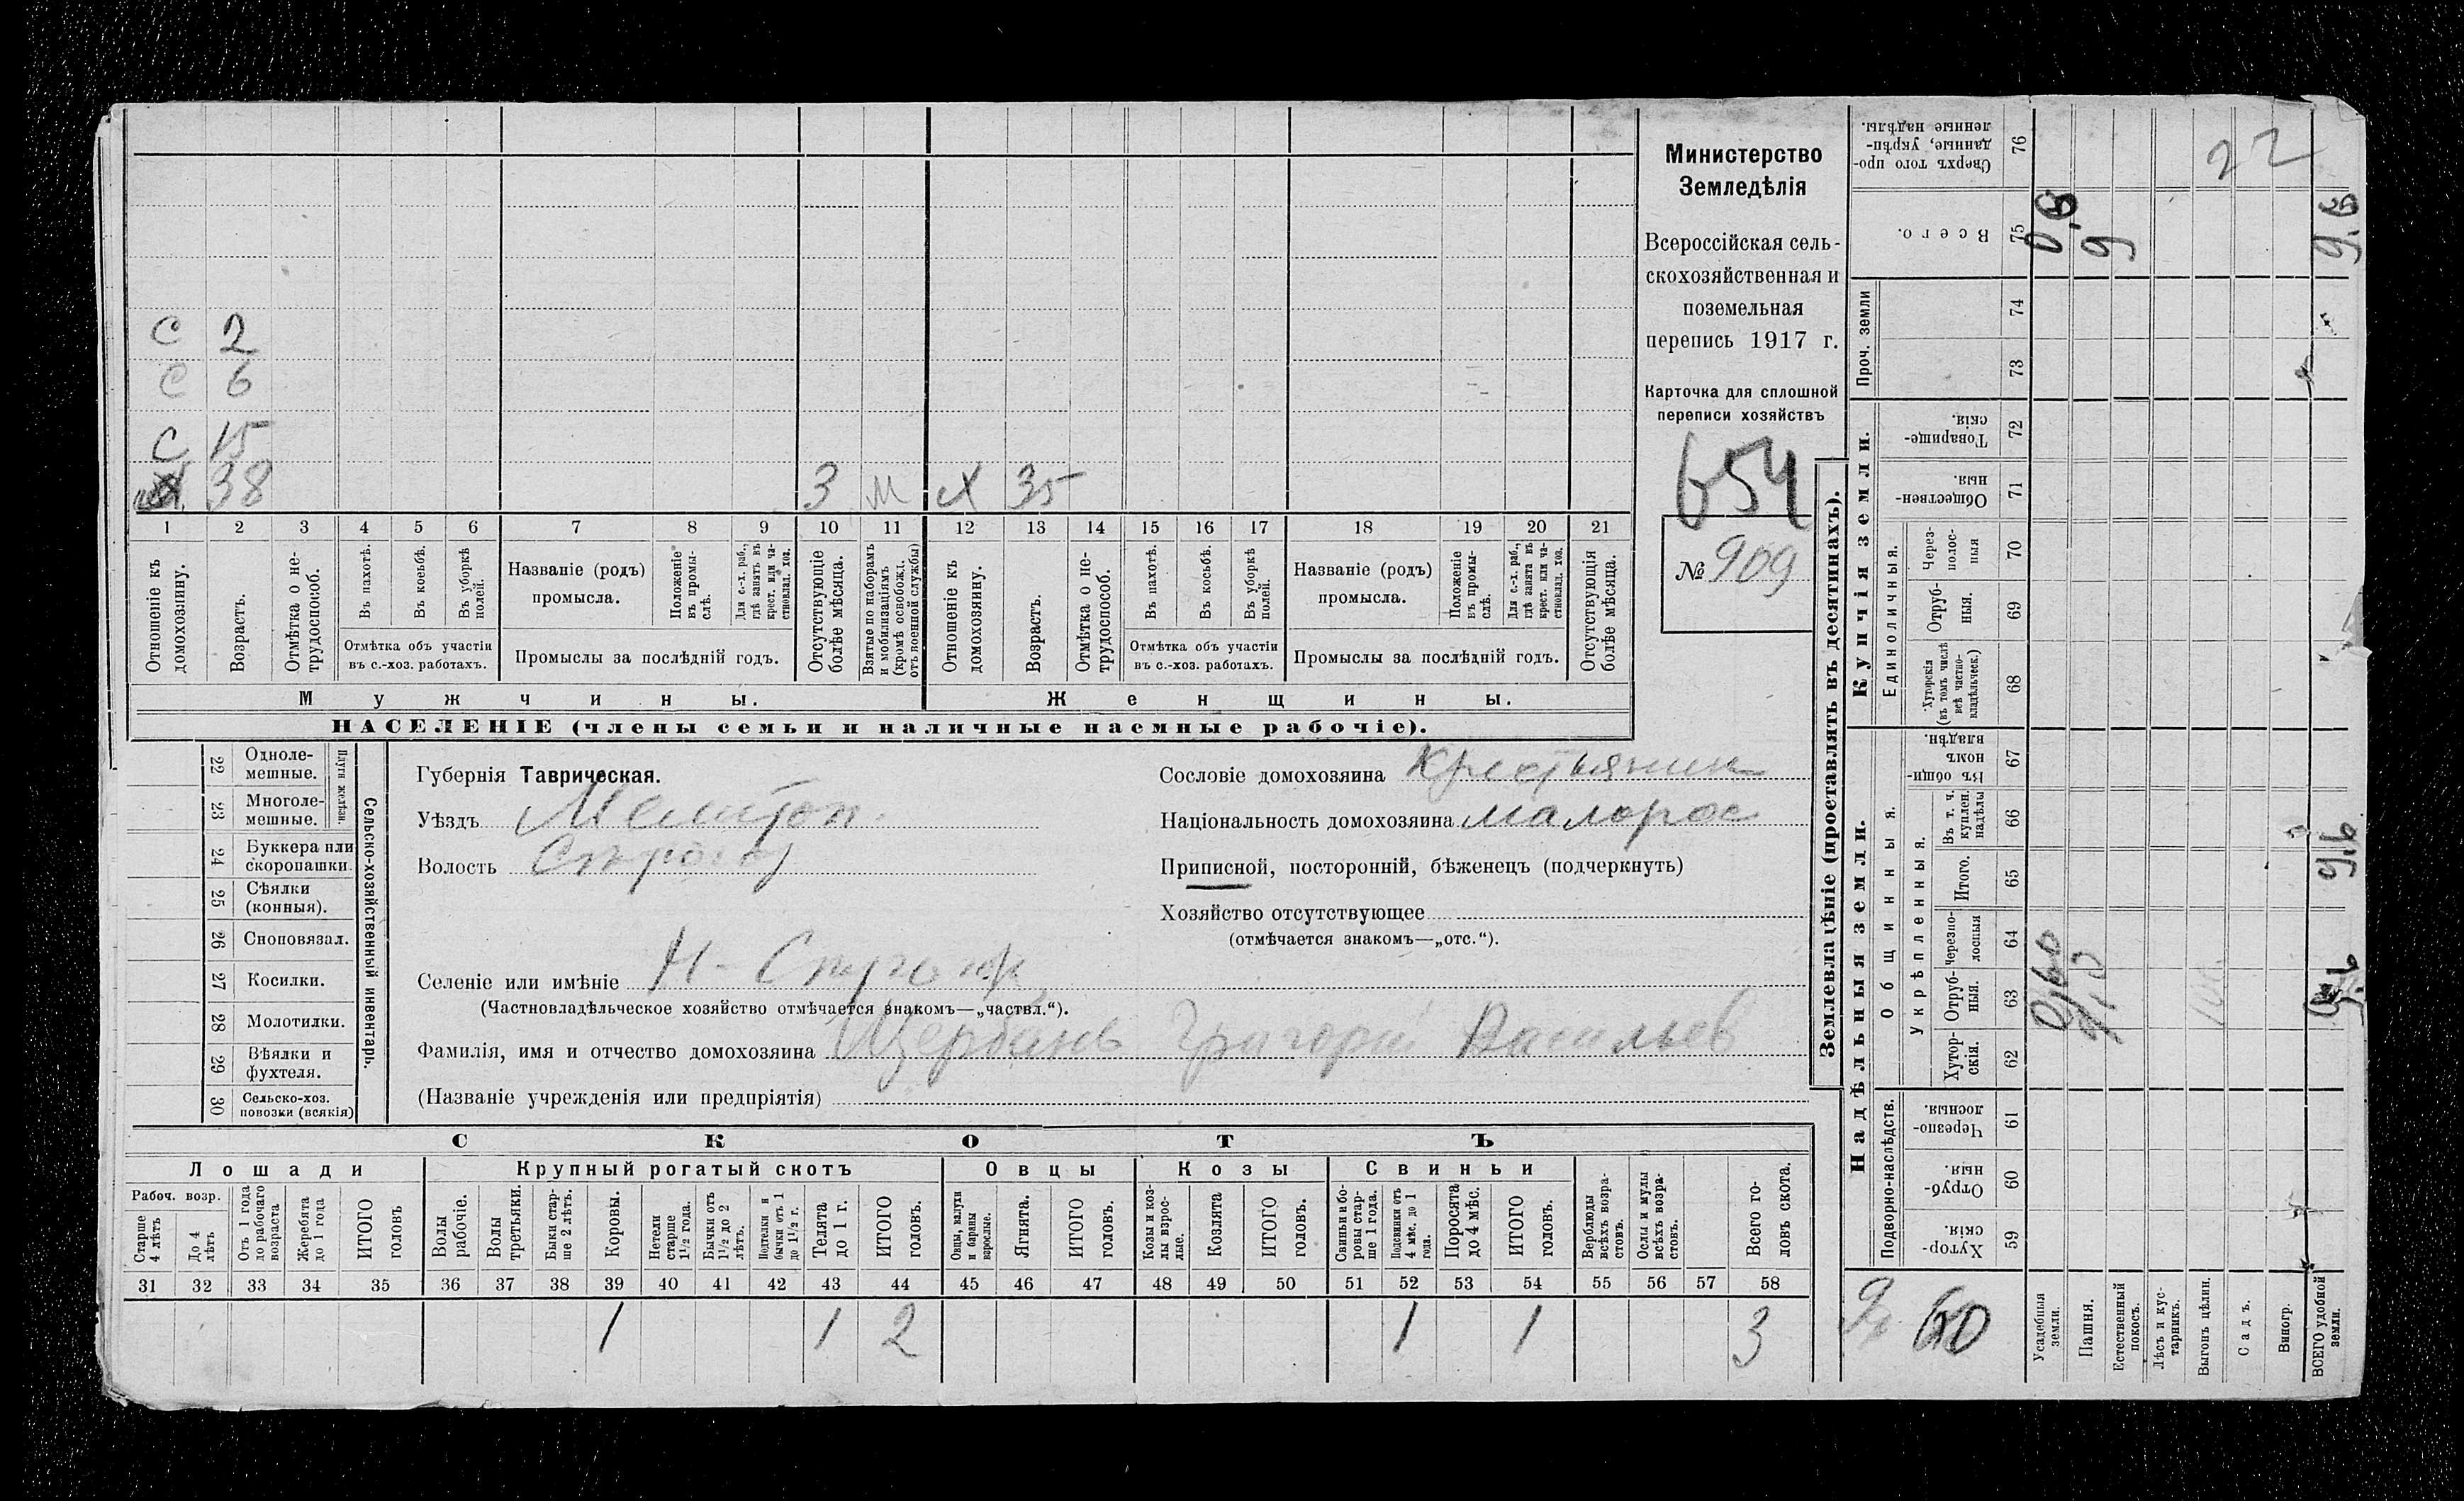 С 2
С 6
С 15
38 3 м х 35
1 2 3 4 5 6 7 8 9 10 11 12 13 14 15 16 17 18 19 20 21
Отношеніе къ домохозяину.
Возрастъ.
Отмѣтка о не-трудоспособ.
Въ пахотѣ.
Въ косьбѣ.
Въ уборкѣ полей.
Отмѣтка объ участіи
въ с.-хоз. работахъ.
Названіе (родъ)
промысла.
Положеніе въ промы-слѣ.
Для с.-х. раб., гдѣ занятъ въ крест. или ча-стновлад. хоз.
Промыслы за послѣдній годъ.
Отсутствующіе болѣе мѣсяца.
Взятые по наборамъ и мобилизаціямъ (кромѣ освобожд. отъ военной службы)
Отношеніе къ домохозяину.
Возрастъ.
Отмѣтка о не-трудоспособ.
Въ пахотѣ.
Въ косьбѣ.
Въ уборкѣ полей.
Отмѣтка объ участіи
въ с.-хоз. работахъ.
Названіе (родъ)
промысла.
Положеніе въ промы-слѣ.
Для с.-х. раб., гдѣ занята въ крест. или ча-стновлад. хоз.
Промыслы за послѣдній годъ.
Отсутствующія болѣе мѣсяца.
Мужчины. Женщины.
НАСЕЛЕНІЕ (члены семьи и наличные наемные рабочіе).
Министерство
Земледѣлія
Всероссійская сель-
скохозяйственная и
поземельная
перепись 1917 г.
Карточка для сплошной
переписи хозяйствъ
654
№ 909
22 Одноле-мешные.
23 Многоле-мешные.
Плуги желѣзн.
24 Буккера или скоропашки.
25 Сѣялки (конныя).
26 Сноповязал.
27 Косилки.
28 Молотилки.
29 Вѣялки и фухтеля.
30 Сельско-хоз. повозки (всякія)
Сельско-хозяйственный инвентарь.
Губернія Таврическая.
Уѣздъ Мелитоп.
Волость
Селеніе или имѣніе
(Частновладѣльческое хозяйство отмѣчается знакомъ—„частвл.“).
Фамилія, имя и отчество домохозяина Щербань Григорій Васильев
(Названіе учрежденія или предпріятія)
Сословіе домохозяина крестьянин
Національность домохозяина малорос
Приписной, посторонній, бѣженецъ (подчеркнуть)
Хозяйство отсутствующее
(отмѣчается знакомъ—„отс.“).
СКОТЪ
Лошади Крупный рогатый скотъ Овцы Козы Свиньи
Рабоч. возр.
Старше 4 лѣтъ
До 4 лѣтъ
Отъ 1 года до рабочаго возраста
Жеребята до 1 года
ИТОГО головъ
Волы рабочіе.
Волы третьяки.
Быки стар-ше 2 лѣтъ.
Коровы.
Нетели старше 1½ года.
Бычки отъ 1½ до 2 лѣтъ.
Подтелки и бычки отъ 1 до 1½ г.
Телята до 1 г.
ИТОГО головъ.
Овцы, валухи и бараны взрослые.
Ягнята.
ИТОГО головъ.
Козы и коз-лы взрос-лые.
Козлята
ИТОГО головъ.
Свиньи и бо-ровы стар-ше 1 года.
Подсвинки отъ 4 мѣс. до 1 года.
Поросята до 4 мѣс.
ИТОГО головъ.
Верблюды всѣхъ возра-стовъ.
Ослы и мулы всѣхъ возра-стовъ.
Всего го-ловъ скота.
31 32 33 34 35 36 37 38 39 40 41 42 43 44 45 46 47 48 49 50 51 52 53 54 55 56 57 58
1 1 2 1 1 3
Землевладѣніе (проставлять въ десятинахъ).
Надѣльныя земли. Купчія земли. Проч. земли
Подворно-наслѣдств.
Общинныя.
Укрѣпленныя.
Единоличныя.
Хутор-скія. 59
Отруб-ныя. 60
Черезпо-лосныя. 61
Хутор-скія. 62
Отруб-ныя. 63
Черезпо-лосныя 64
Итого. 65
Въ т. ч. куплен. надѣлы 66
Въ общи-номъ владѣн. 67
Хуторскія (въ томъ числѣ всѣ частно-владѣльческ.) 68
Отруб-ныя. 69
Через-полос-ныя 70
Обществен-ныя. 71
Товарище-скія. 72
73
74
Всего. 75
Сверхъ того про-данные, укрѣп-ленные надѣлы. 76
Усадебныя земли.
Пашня.
Естественный покосъ.
Лѣсъ и кус-тарникъ.
Выгонъ цѣлин.
Садъ.
Виногр.
ВСЕГО удобной земли.
22
9
9.6
9.6